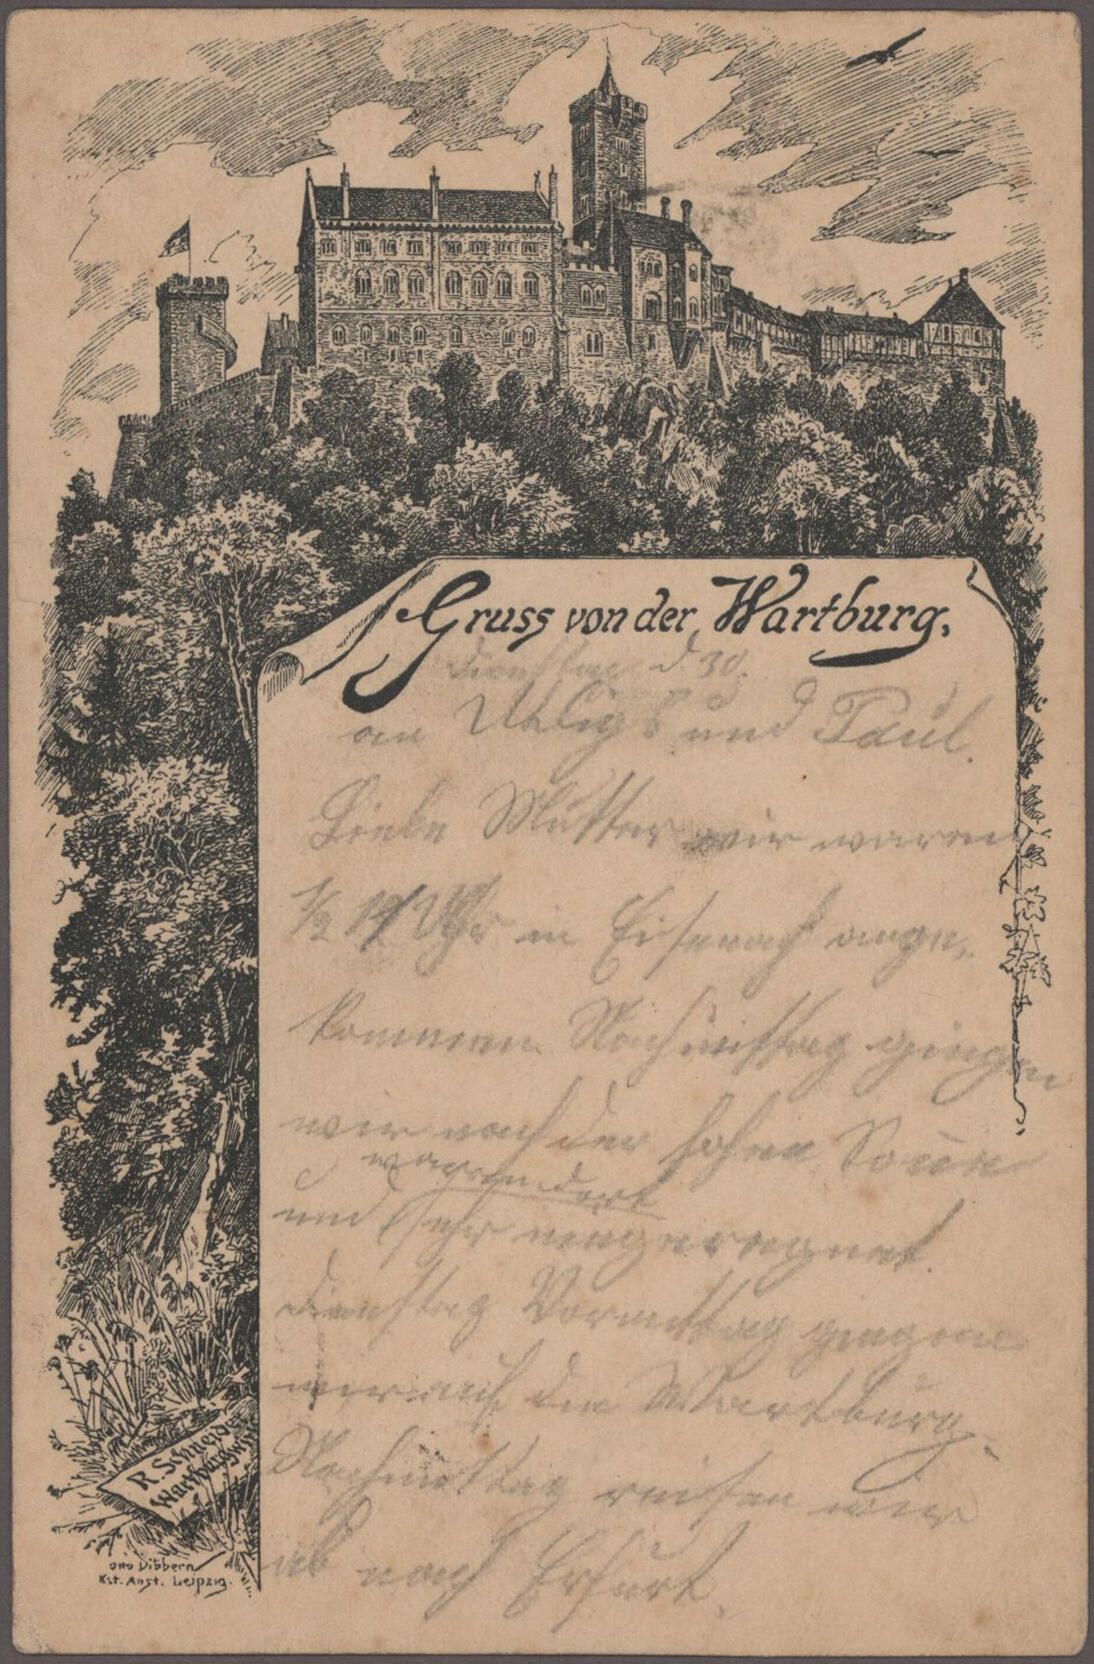 Gruss von der Wartburg.
Dienstag d. 30.
an Uhligs und Paul.
Liebe Mutter wir waren
1/2 Uhr in Eisenach ange-
kommen. Nachmittag gingen
wir nach der hohen Sonne
wurden dort
und sehr eingeregnet.
Dienstag Vormittag gingen
wir auf die Wartburg.
Nachmittag reisen wir
ab nach Erfurt.
R. Schneider
Wartburgwirt
Otto Dibbern
Kst. Anst. Leipzig.